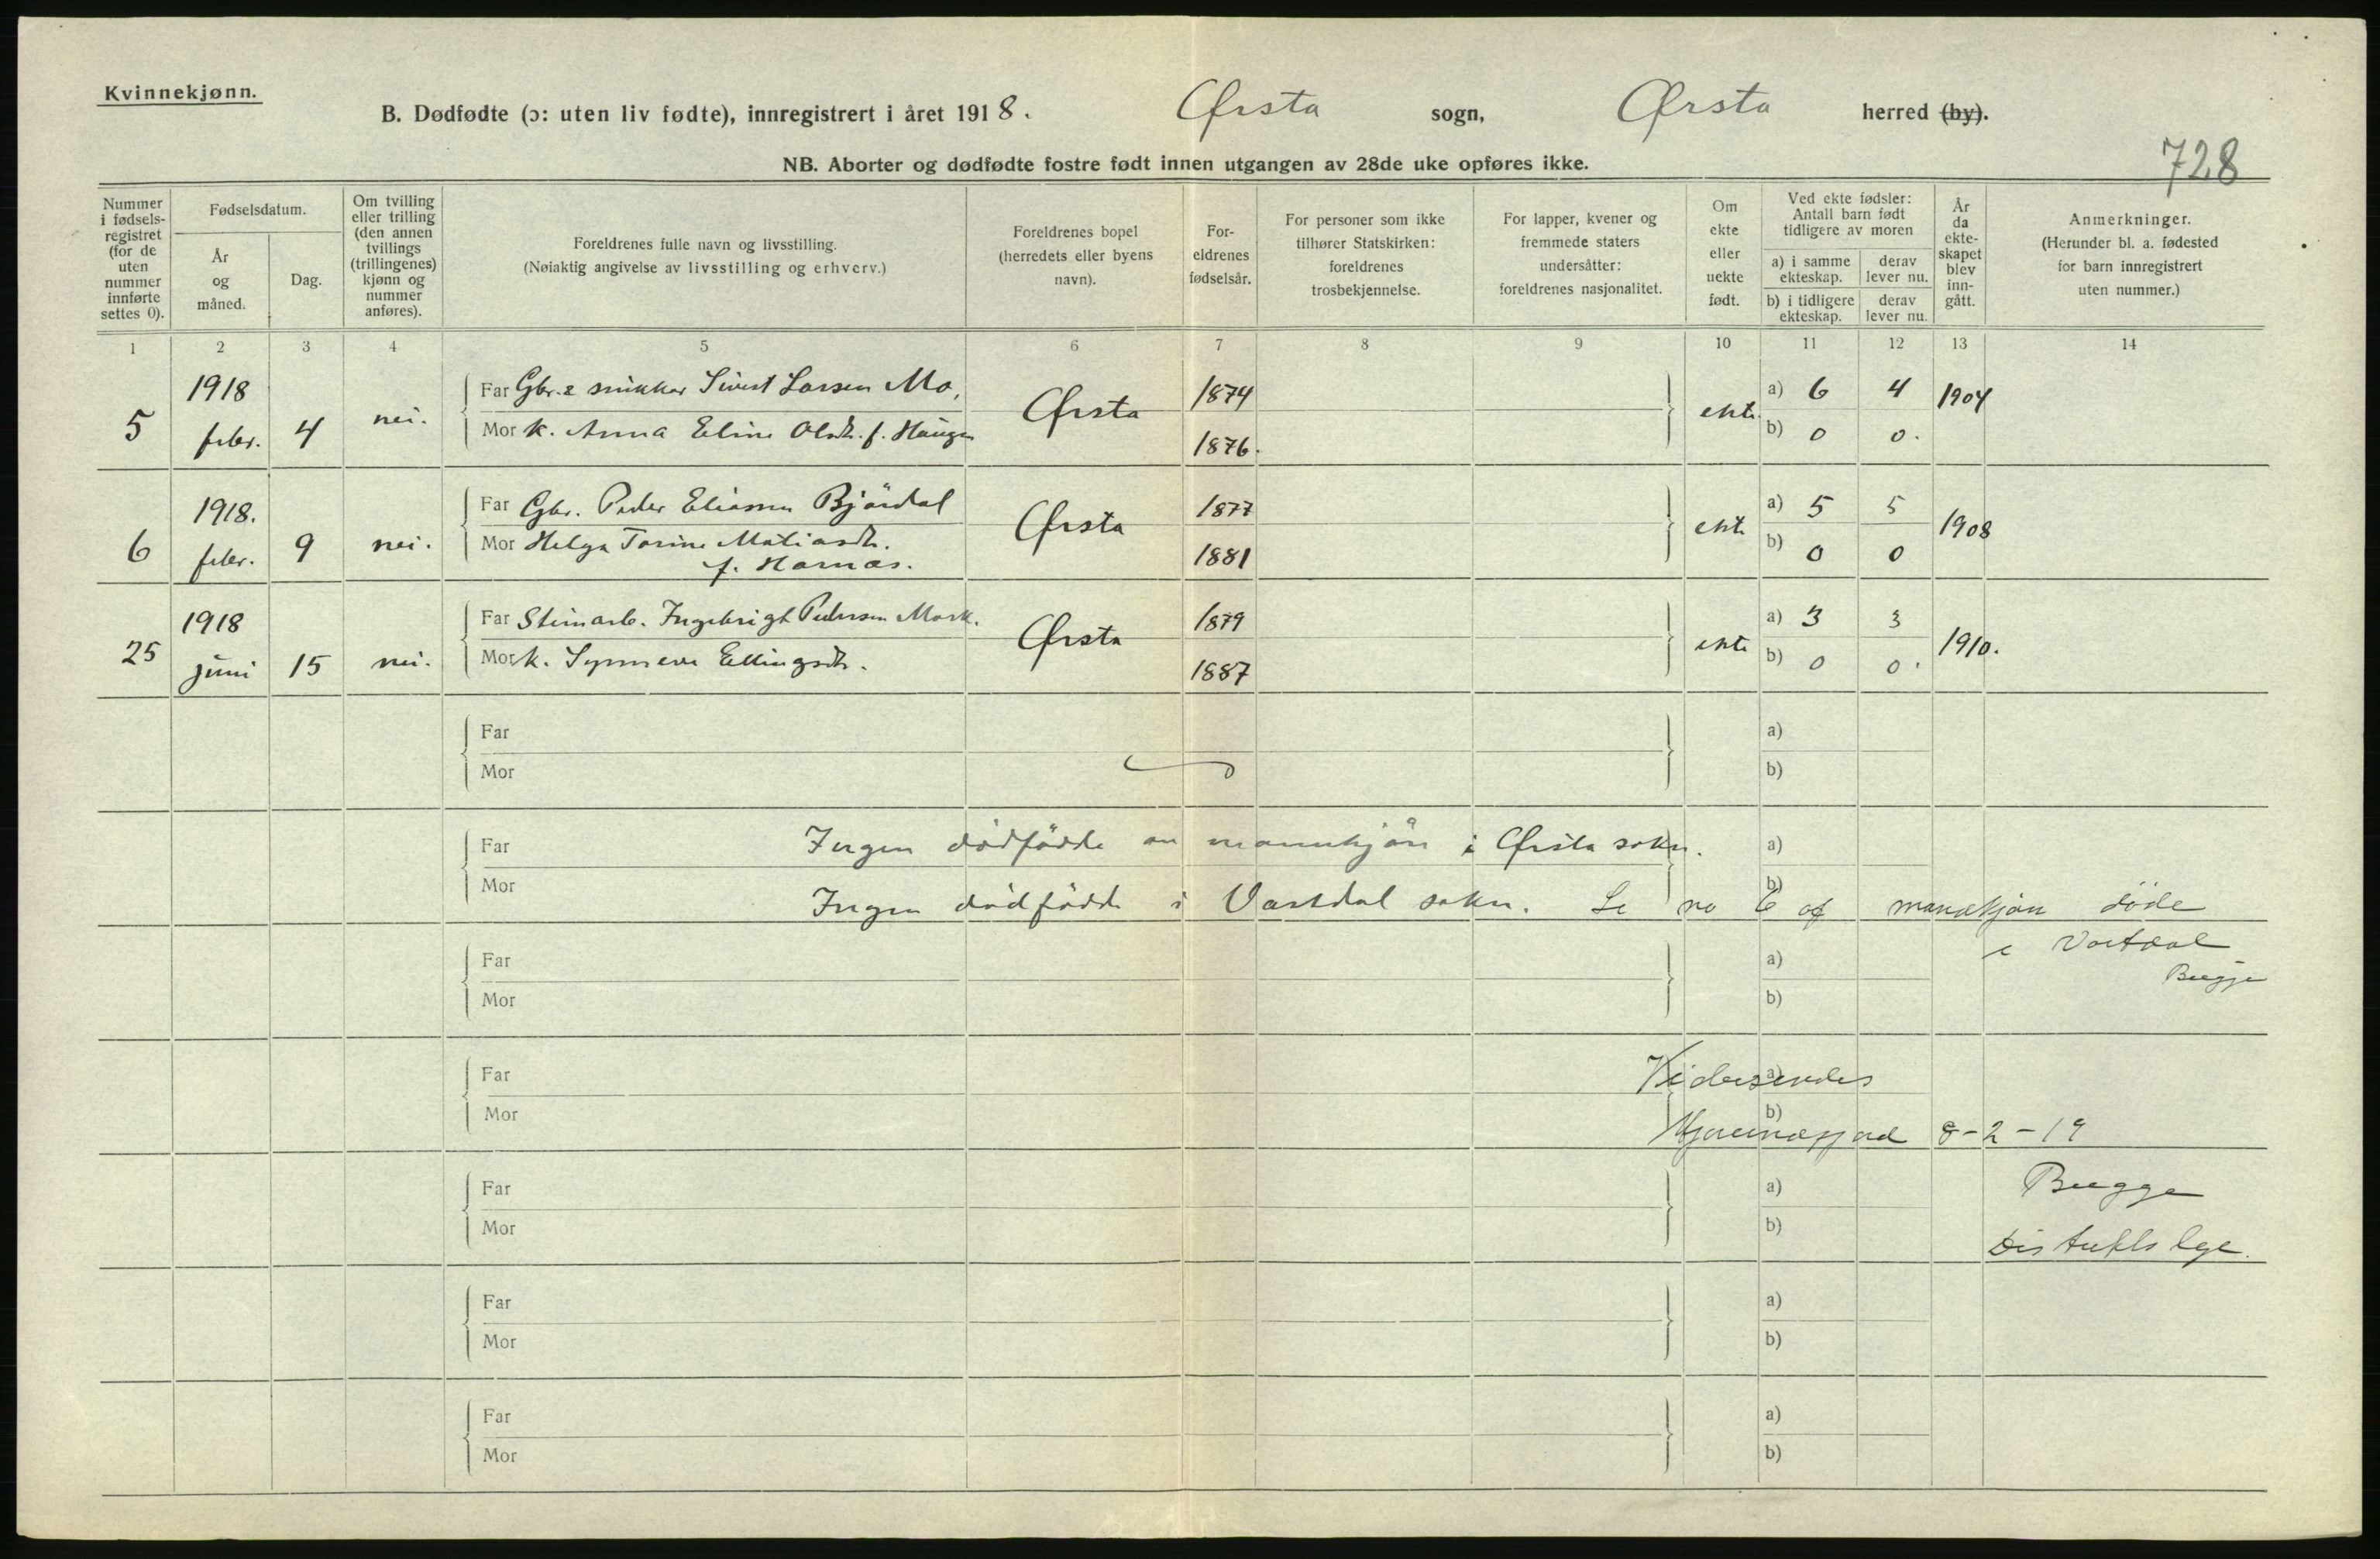 Kvinnekjønn.
B. Dødfødte (ɔ: uten liv fødte), innregistrert i året 1918. Ørsta sogn, Ørsta herred (by).
NB. Aborter og dødfødte fostre født innen utgangen av 28de uke opføres ikke.
728
Nummer i fødsels-registret (for de uten nummer innførte settes 0).
Fødselsdatum.
År og måned.
Dag.
Om tvilling eller trilling (den annen tvillings (trillingenes) kjønn og nummer anføres).
Foreldrenes fulle navn og livsstilling.
(Nøiaktig angivelse av livsstilling og erhverv.)
Foreldrenes bopel (herredets eller byens navn).
For-eldrenes fødselsår.
For personer som ikke tilhører Statskirken: foreldrenes trosbekjennelse.
For lapper, kvener og fremmede staters undersåtter: foreldrenes nasjonalitet.
Om ekte eller uekte født.
Ved ekte fødsler: Antall barn født tidligere av moren
a) i samme ekteskap. derav lever nu.
b) i tidligere ekteskap. derav lever nu.
År da ekte-skapet blev inn-gått.
Anmerkninger.
(Herunder bl. a. fødested for barn innregistrert uten nummer.)
1 2 3 4 5 6 7 8 9 10 11 12 13 14
5 1918 febr. 4 nei. Far Gbr. & snikkar Sivert Larsen Mo, Ørsta 1874 ekte. a) 6 4 1904
Mor k. Anna Eline Olsdt. f. Haugen 1876. b) 0 0.
6 1918. febr. 9 nei. Far Gbr. Peder Eliassen Bjørdal Ørsta 1877 ekte a) 5 5 1908
Mor Helga Torine Matiasdt. 1881 b) 0 0
f. Hamas.
25 1918 juni 15 nei. Far Steinarb. Ingebrigt Pedersen Mork. Ørsta 1879 ekte a) 3 3 1910.
Mor k. Synneve Ellingsdt. 1887 b) 0 0.
Far a)
Mor b)
Far Ingen dödfödde av mannkjön i Ørsta sokn. a)
Mor Ingen dödfödde i Vartdal sokn. Se no 6 af mandkjön döde b)
i Vartdal
Bugge
Far a)
Mor b)
Far Videresendes a)
Mor b)
Hjørundfjord 8-2-19
Far a) Bugge
Mor b)
Distriktslege.
Far a)
Mor b)
Far a)
Mor b)